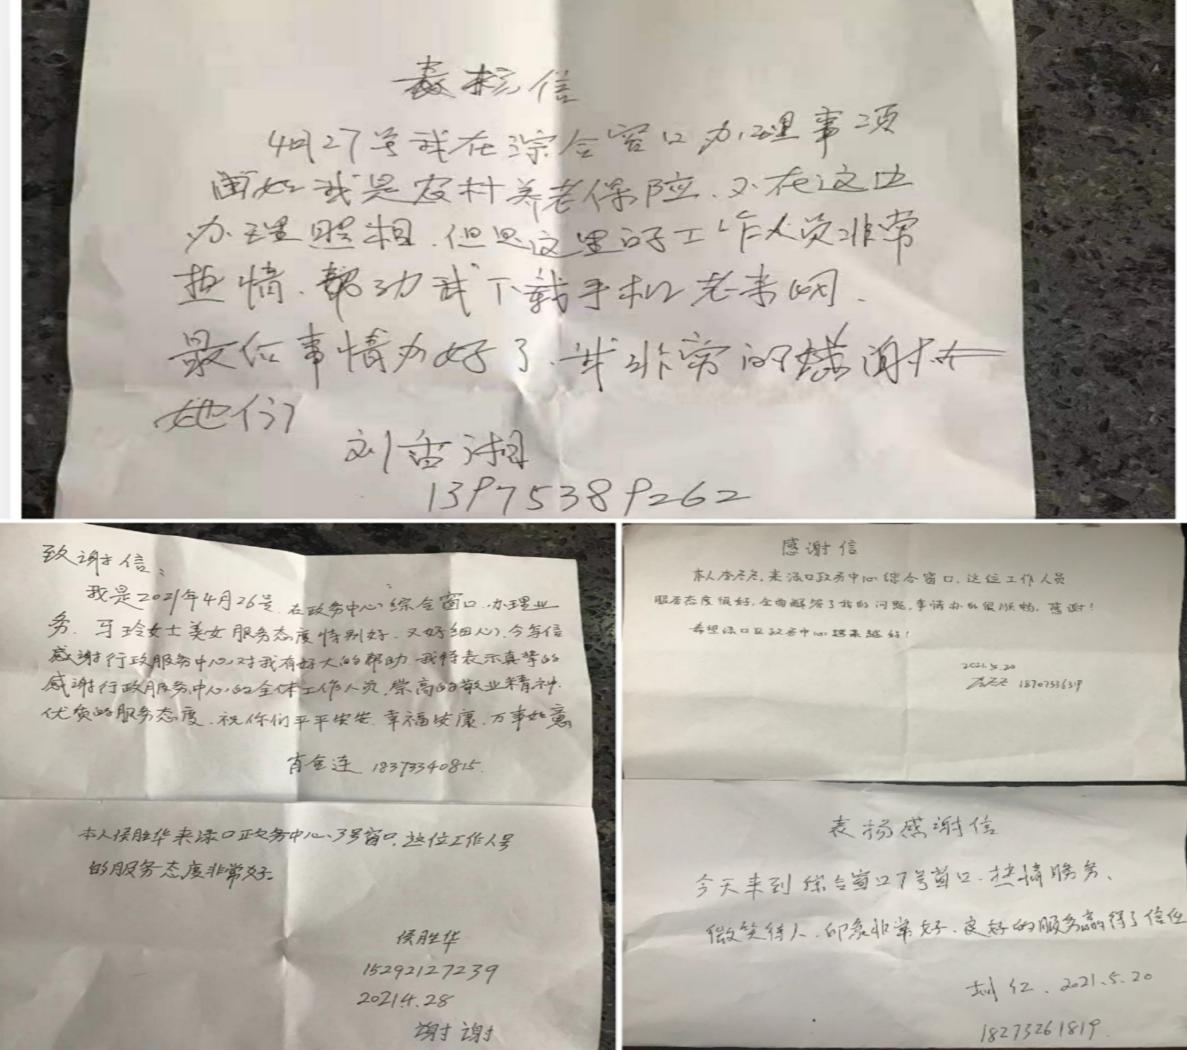 表扬信
4月27号我在综合窗口办理事项
因为我是农村养老保险、不在这边
办理照相、但是这里的工作人员非常
热情、帮助我下载手机老来网、
最后事情办好了、我非常的感谢
她们
刘香湘
13975389262
致谢信:
我是2021年4月26号、在政务中心综合窗口、办理业
务、 玲女士美女服务态度特别好、又好细心、今写信
感谢行政服务中心,对我有好大的帮助、我特表示真挚的
感谢行政服务中心的全体工作人员、崇高的敬业精神、
优质的服务态度、祝你们平平安安、幸福安康、万事如意
肖金连 18373340815.
本人侯胜华来渌口政务中心、7号窗口、这位工作人员
的服务态度非常好.
侯胜华
15292127239
2021.4.28
谢谢
感谢信
本人李冬冬,来渌口政务中心综合窗口,这位工作人员
服务态度很好,全面解答了我的问题,事情办的很顺畅,感谢!
希望渌口区政务中心越来越好!
2021.5.20
表扬感谢信
今天来到综合窗口7号窗口、热情服务、
微笑待人、印象非常好、良好的服务赢得了信任
红、2021.5.20
18273261819.